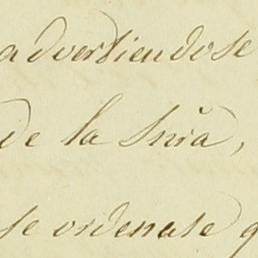 advertiendose
de la Snrã,
se ordenase q